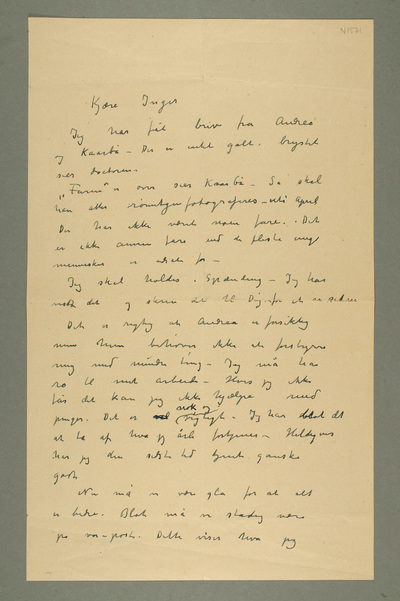 N1571
Kjære Inger
Jeg har fåt brev fra Andrea
og Kaarbø – Der er intet galt. brystet
sier doctoren.
"Faren" er over sier Kaarbø – Så skal
hun atter röntgenfotograferes – april
Der har ikke været nogen fare. Det
er ikke annen fare end de fleste unge
mennesker er utsat for –
Jeg skal holdes i Spænding – Jeg har
det og skriver til Dig for at
Det er rigtig at Andrea er forsiktig
men hun behöver ikke at forstyrre
mig med mindre ting – Jeg må ha
ro til mit arbeide – Hvis jeg ikke
får det kan jeg ikke hjælpe med
penger. Det er nok og vigtigt – Jeg har det
at ta af hva jeg fortjener – Heldigvis
har jeg den siste tid tjent ganske
godt
Nu må vi være gla for at alt
er bedre. Blot må vi stadig være
på vor post. Dette viser hva jeg